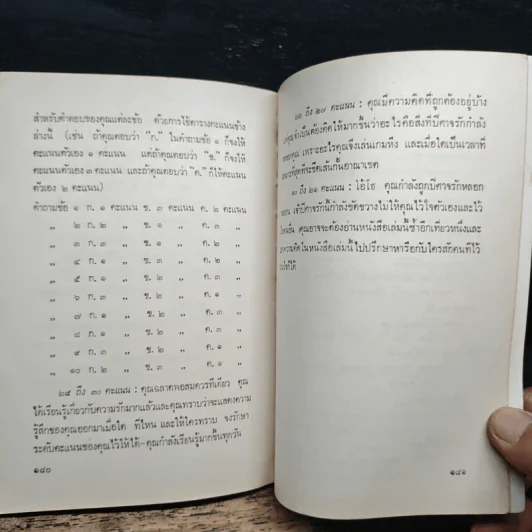 สำหรับคำตอบของคุณแต่ละข้อ ด้วยการใช้ตารางคะแนนข้าง
ล่างนี้ (เช่น ถ้าคุณตอบว่า "ก." ในคำถามข้อ ๑ ก็จงให้
คะแนนตัวเอง ๑ คะแนน แต่ถ้าคุณตอบว่า "ข." ก็จงให้
คะแนนตัวเอง ๓ คะแนน และถ้าคุณตอบว่า "ค." ก็ให้คะแนน
ตัวเอง ๒ คะแนน)
คำถามข้อ ๑ ก. ๑ คะแนน ข. ๓ คะแนน ค. ๒ คะแนน
" ๒ ก. ๒ " ข. ๑ " ค. ๓ "
" ๓ ก. ๑ " ข. ๓ " ค. ๒ "
" ๔ ก. ๑ " ข. ๒ " ค. ๓ "
" ๕ ก. ๑ " ข. ๒ " ค. ๓ "
" ๖ ก. ๓ " ข. ๒ " ค. ๑ "
" ๗ ก. ๑ " ข. ๒ " ค. ๓ "
" ๘ ก. ๑ " ข. ๒ " ค. ๓ "
" ๙ ก. ๓ " ข. ๒ " ค. ๑ "
" ๑๐ ก. ๒ " ข. ๓ " ค. ๑ "
๒๘ ถึง ๓๐ คะแนน : คุณฉลาดพอสมควรทีเดียว คุณ
ได้เรียนรู้เกี่ยวกับความรักมากแล้วและคุณทราบว่าจะแสดงความ
รู้สึกของคุณออกมาเมื่อใด ที่ไหน และให้ใครทราบ จงรักษา
ระดับคะแนนของคุณไว้ให้ได้-คุณกำลังเรียนรู้มากขึ้นทุกวัน
๑๘๐
๒๒ ถึง ๒๗ คะแนน : คุณมีความคิดที่ถูกต้องอยู่บ้าง
คุณจำเป็นต้องคิดให้มากขึ้นว่าอะไรคือสิ่งที่ปีศาจรักกำลัง
คุณ เพราะอะไรคุณจึงเล่นเกมหึง และเมื่อใดเป็นเวลาที่
ที่สุดที่จะขีดเส้นกั้นอาณาเขต
๑๐ ถึง ๒๑ คะแนน : โอ้โฮ คุณกำลังถูกปีศาจรักหลอก
เจ้าปีศาจรักนั้นกำลังขัดขวางไม่ให้คุณไว้ใจตัวเองและไว้
คนอื่น คุณอาจจะต้องอ่านหนังสือเล่มนี้ซ้ำอีกเที่ยวหนึ่งและ
ความคิดในหนังสือเล่มนี้ไปปรึกษาหารือกับใครสักคนที่ไว้
ได้
๑๘๑